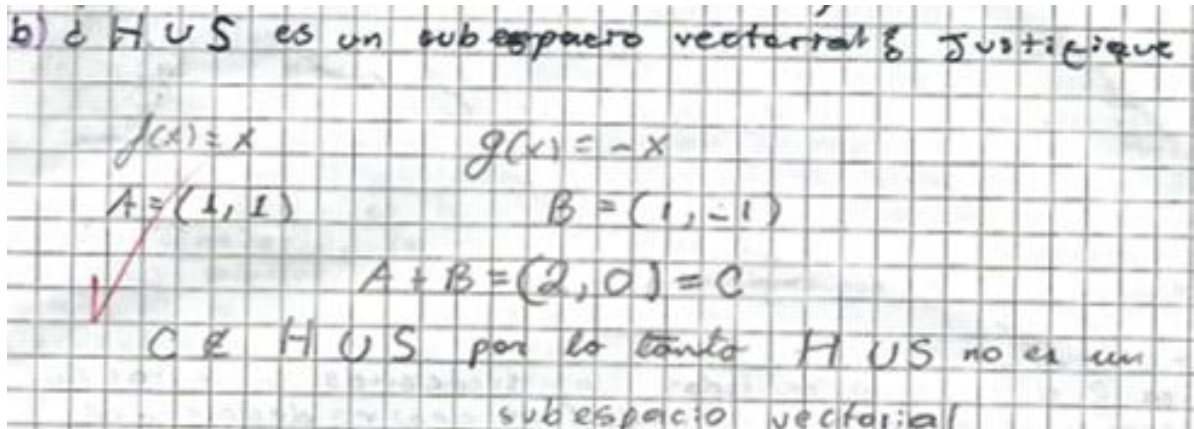 b) ¿ H U S es un subespacio vectorial ? Justifique
f(x) = x g(x) = -x
A = (1, 1) B = (1, -1)
A + B = (2, 0) = C
C ∉ H U S por lo tanto H U S no es un
subespacio vectorial